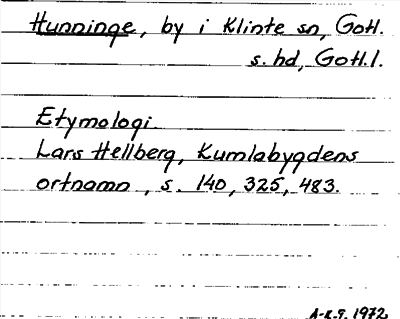 Hunninge, by i Klinte sn, Gotl.
s. hd, Gotl. l.
Etymologi
Lars Hellberg, Kumlabygdens
ortnamn, s. 140, 325, 483.
1972